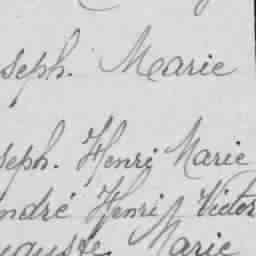 seph. Marie
seph. Henri Marie
ndré Henri Victor
uguste Marie